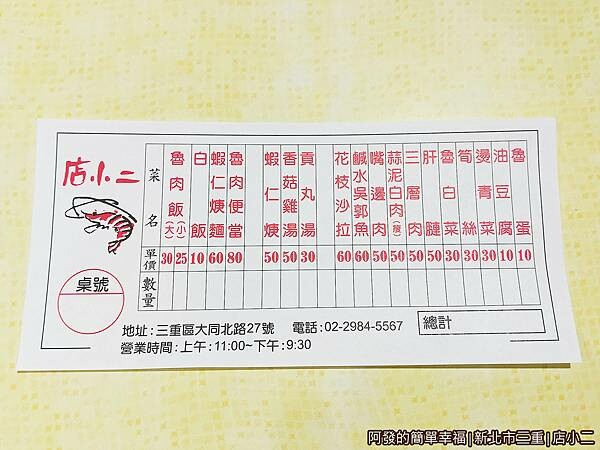 店小二
菜名
單價
數量
魯肉飯(大)(小) 30 25
白飯 10
蝦仁焿麵 60
魯肉便當 80
蝦仁焿 50
香菇雞湯 50
貢丸湯 30
花枝沙拉 60
鹹水吳郭魚 60
嘴邊肉 50
蒜泥白肉(瘦) 50
三層肉 50
肝腱 50
魯白菜 30
筍絲 30
燙青菜 30
油豆腐 10
魯蛋 10
桌號
地址:三重區大同北路27號 電話:02-2984-5567
營業時間:上午:11:00~下午:9:30
總計
阿發的簡單幸福|新北市三重|店小二